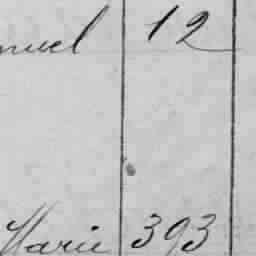 nuel 12
Marie 393